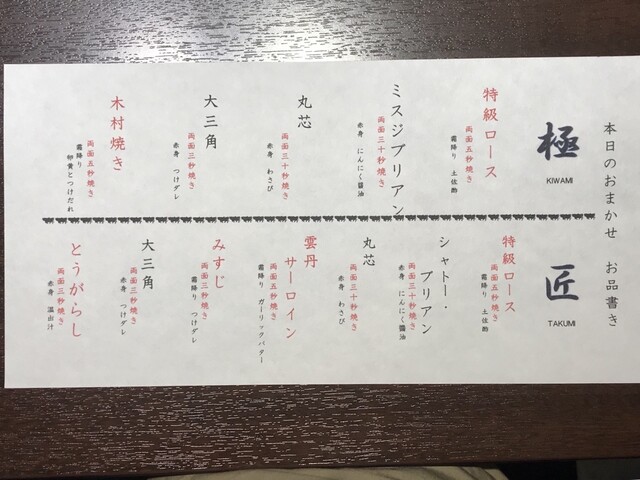 本日のおまかせ お品書き
極
KIWAMI
特級ロース
両面五秒焼き
霜降り 土佐酢
ミスジブリアン
両面三十秒焼き
赤身 にんにく醤油
丸芯
両面三十秒焼き
赤身 わさび
大三角
両面三秒焼き
赤身 つけダレ
木村焼き
両面五秒焼き
霜降り
卵黄とつけだれ
匠
TAKUMI
特級ロース
両面五秒焼き
霜降り 土佐酢
シャトー・
ブリアン
両面三十秒焼き
赤身 にんにく醤油
丸芯
両面三十秒焼き
赤身 わさび
雲丹
サーロイン
両面五秒焼き
霜降り ガーリックバター
みすじ
両面三秒焼き
霜降り つけダレ
大三角
両面三秒焼き
赤身 つけダレ
とうがらし
両面三秒焼き
赤身 温出汁